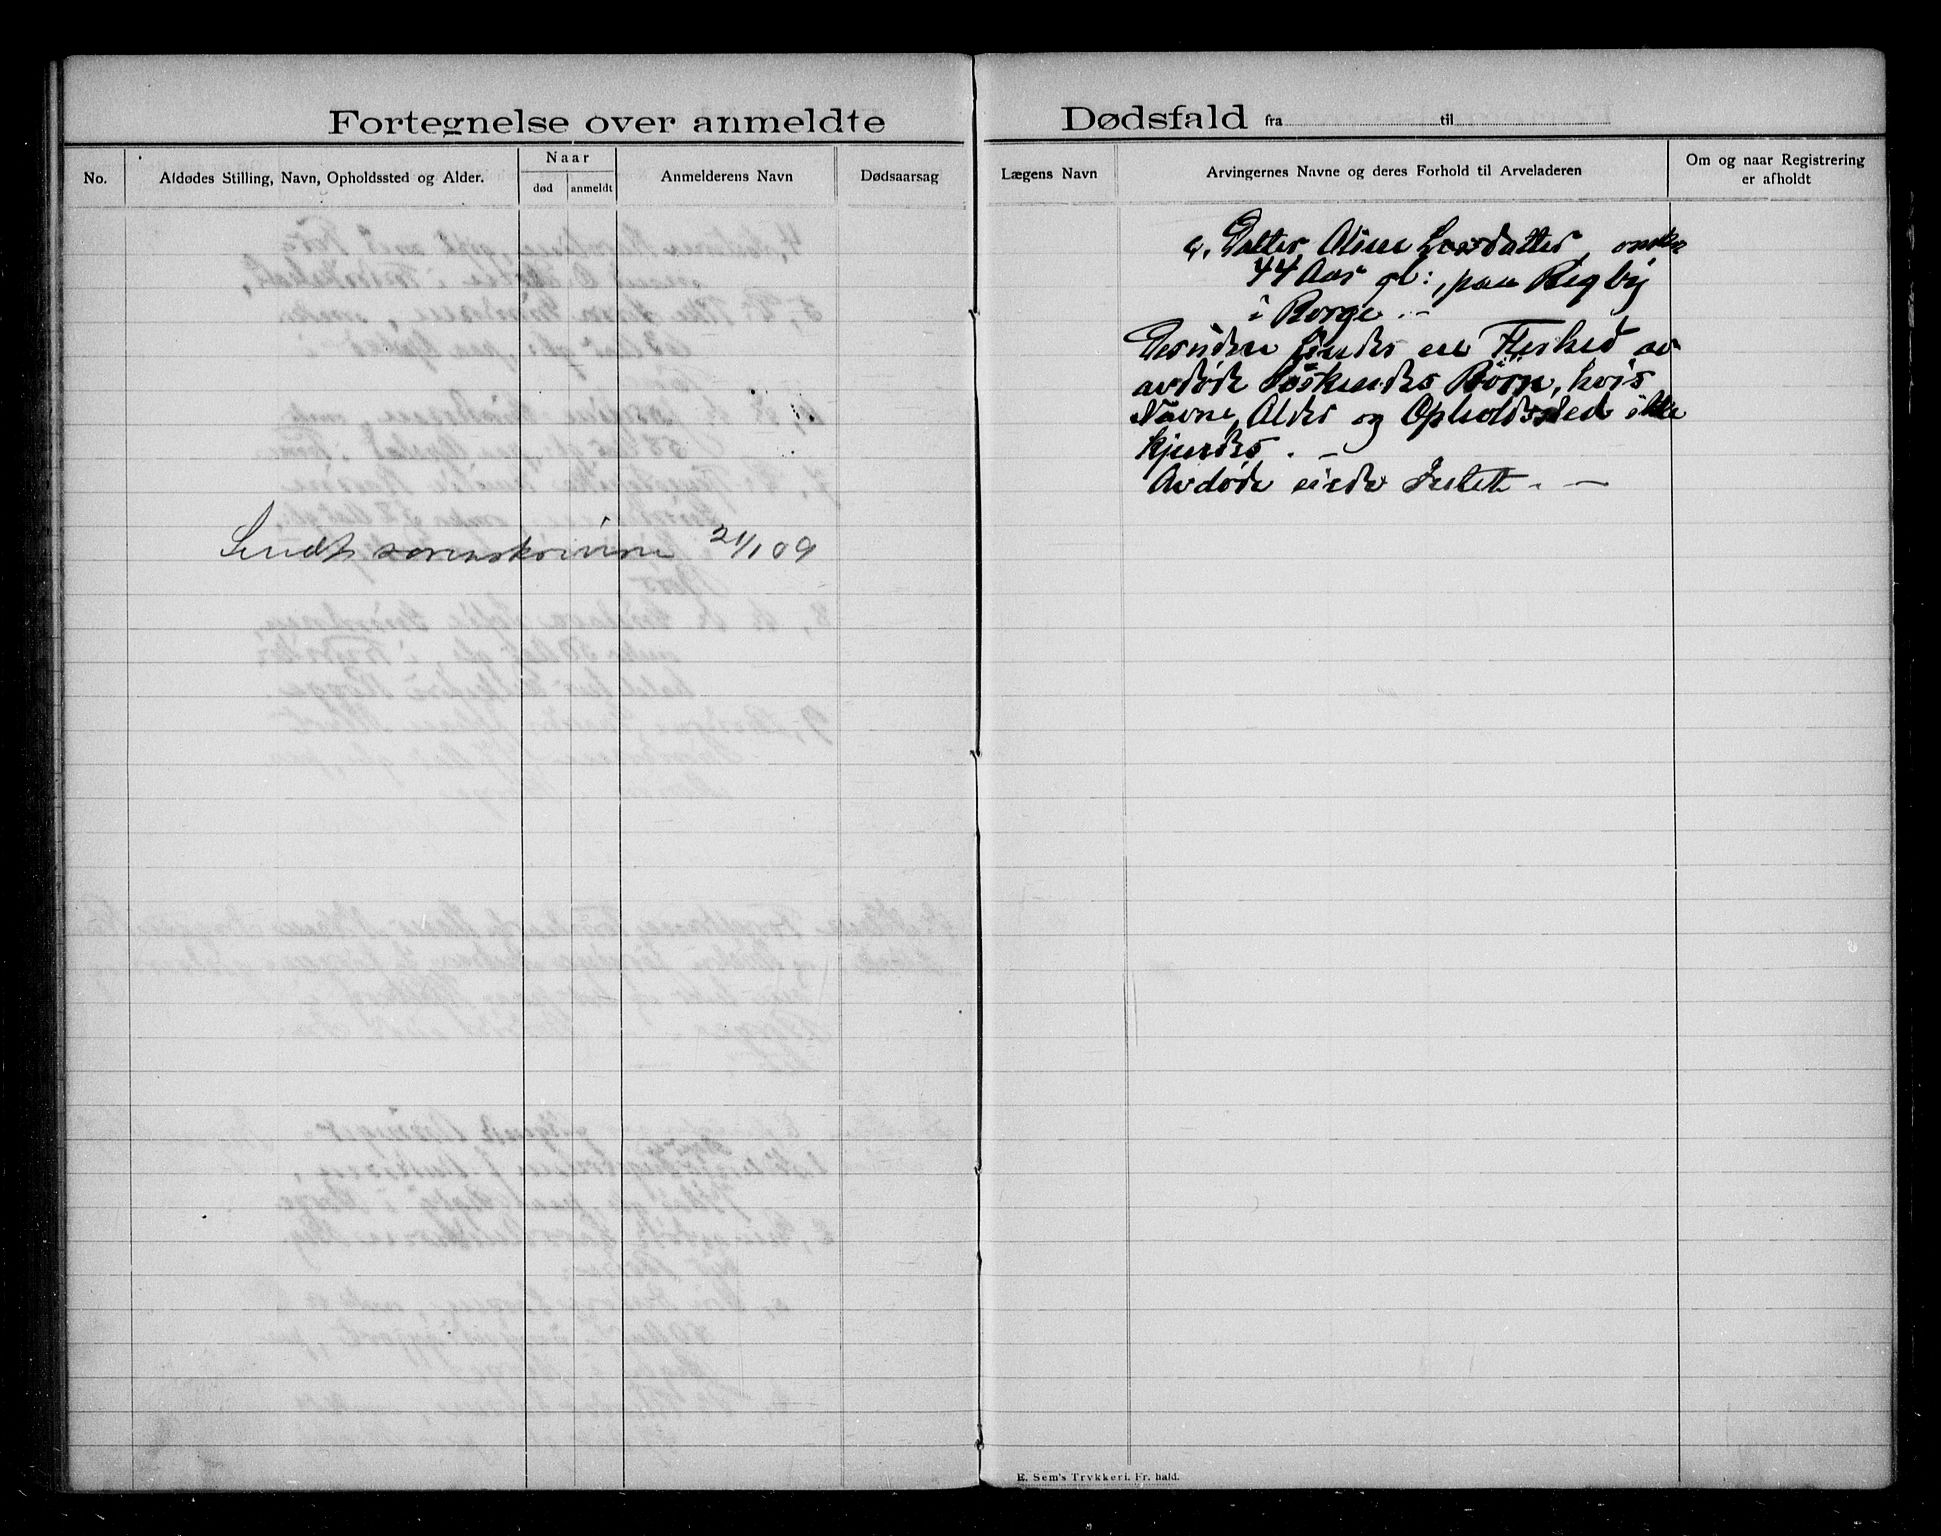 Fortegnelse over anmeldte
No.
Afdødes Stilling, Navn, Opholdssted og Alder.
Naar
død
anmeldt
Anmelderens Navn
Dødsaarsag
Sendt sorenskriveren 21/1 09
Dødsfald fra til
Lægens Navn
Arvingernes Navne og deres Forhold til Arveladeren
Om og naar Registrering
er afholdt
c. Datter Aline Larsdatter, omkr
44 Aar gl:, paa Rigby
i Borge. —
Desuden findes en Flerhed av
avdøde Søskendes Börn, hvis
Navne, Alder og Opholdssted ikke
kjendes. —
Avdøde eiede Intet. —
E. Sem's Trykkeri. Fr. hald.